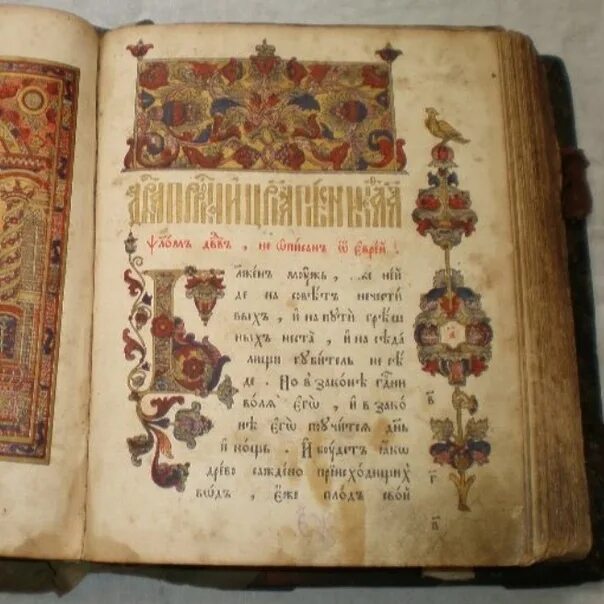 Ѱломъ двв҃ъ , не ѡписан ѿ еврей .
Блжен моужь , иже ней
де на совѣтъ нечести
выхъ , и на пути грѣш
ныхъ неста , и на сѣда
лищи губитель не сѣ
де . Но в законѣ гдни
волѧ егѡ , и в зако
нѣ егѡ поучится днь
и нощь . И боудетъ ꙗкѡ
древо саждено приисходищих
водъ , еже плодъ свой